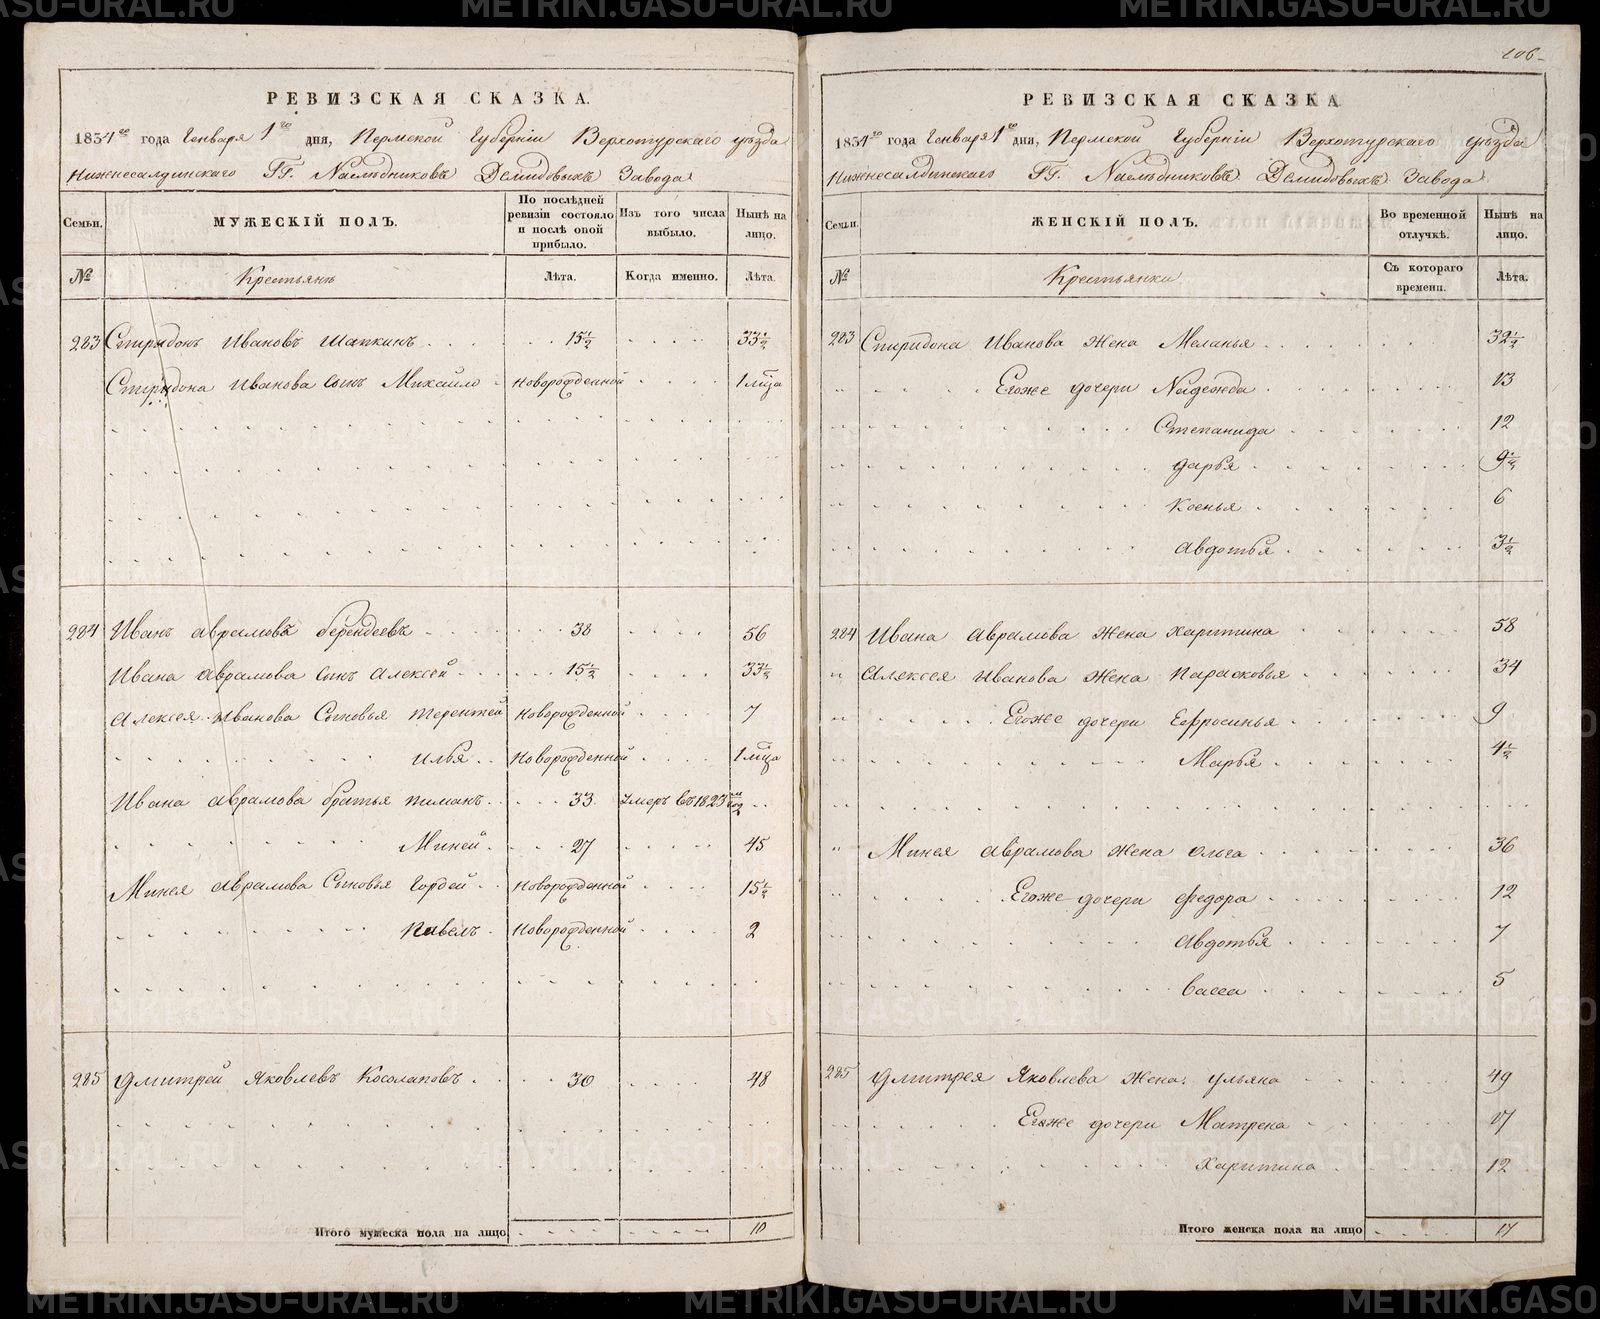 206
РЕВИЗСКАЯ СКАЗКА.
1834го года Генваря 1го дня, Пермской Губерніи Верхотурскаго уѣзда
Нижнесалдинскаго ГГ. Наслѣдниковъ Демидовыхъ Завода
Семьи. МУЖЕСКІЙ ПОЛЪ. По послѣдней ревизіи состояло и послѣ оной прибыло. Изъ того числа выбыло. Нынѣ на лицо.
№ Крестьянъ Лѣта. Когда именно. Лѣта.
283 Спиридонъ Ивановъ Шапкинъ 15½ 33½
Спиридона Иванова сынъ Михайло новорожденной 1 м̃ца
284 Иванъ Аврамовъ Берендеевъ 38 56
Ивана Аврамова сынъ Алексей 15½ 33½
Алексея Иванова Сыновья Терентей новорожденной 7
Илья новорожденной 1 м̃ца
Ивана Аврамова братья Пиманъ 33 умеръ въ 1823м год
Миней 27 45
Минея Аврамова Сыновья Гордей новорожденной 15½
Павелъ новорожденной 2
285 Дмитрей Яковлевъ Косолаповъ 30 48
Итого мужеска пола на лицо 10
РЕВИЗСКАЯ СКАЗКА
1834го года Генваря 1го дня, Пермской Губерніи Верхотурскаго уѣзда
Нижнесалдинскаго ГГ. Наслѣдниковъ Демидовыхъ Завода
Семьи. ЖЕНСКІЙ ПОЛЪ. Во временной отлучкѣ. Нынѣ на лицо.
№ Крестьянки Съ котораго времени. Лѣта.
283 Спиридона Иванова жена Меланья 32½
Егоже дочери Надежда 13
Степанида 12
Дарья 9½
Ксенья 6
Авдотья 3½
284 Ивана Аврамова жена Харитина 58
" Алексея Иванова жена Парасковья 34
" Егоже дочери Ефросинья 9
Марья 4½
" Минея Аврамова жена Ольга 36
Егоже дочери Федора 12
Авдотья 7
Васса 5
285 Дмитрея Яковлева жена Ульяна 49
Егоже дочери Матрена 17
Харитина 12
Итого женска пола на лицо 17
METRIKI.GASO-URAL.RU